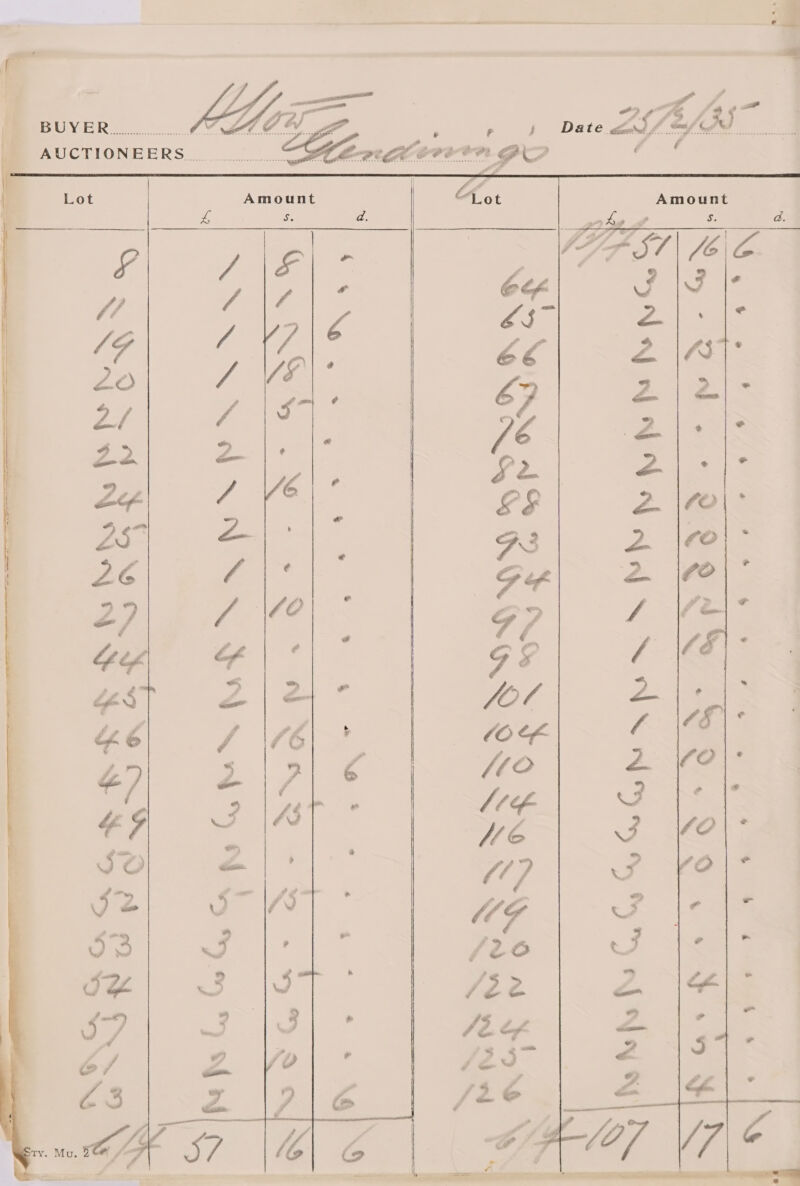 BUYER Date 25/2/35
AUCTIONEERS Glendining
Lot Amount Lot Amount
£ s. d. £ s. d.
B/F 51 16 6
8 1 8 -
11 1 1 -
19 1 17 6
20 1 18 -
21 1 5 -
22 2 - -
24 1 16 -
25 2 - -
26 1 - -
27 1 10 -
44 4 - -
45 2 2 -
46 1 16 -
47 2 7 6
49 3 15 -
50 2 - -
52 5 15 -
53 3 - -
54 3 5 -
57 3 3 -
61 2 10 -
63 2 7 6
C/F 51 16 6
64 3 3 -
65 2 - -
66 2 15 -
67 2 2 -
76 2 - -
82 2 - -
88 2 10 -
93 2 10 -
94 2 10 -
97 1 12 -
98 1 18 -
101 2 - -
104 1 18 -
110 2 10 -
114 3 - -
116 3 10 -
117 3 10 -
119 3 - -
120 3 - -
122 2 4 -
124 2 - -
125 2 5 -
126 2 4 -
C/F 107 17 6
Sty. Mu. 2